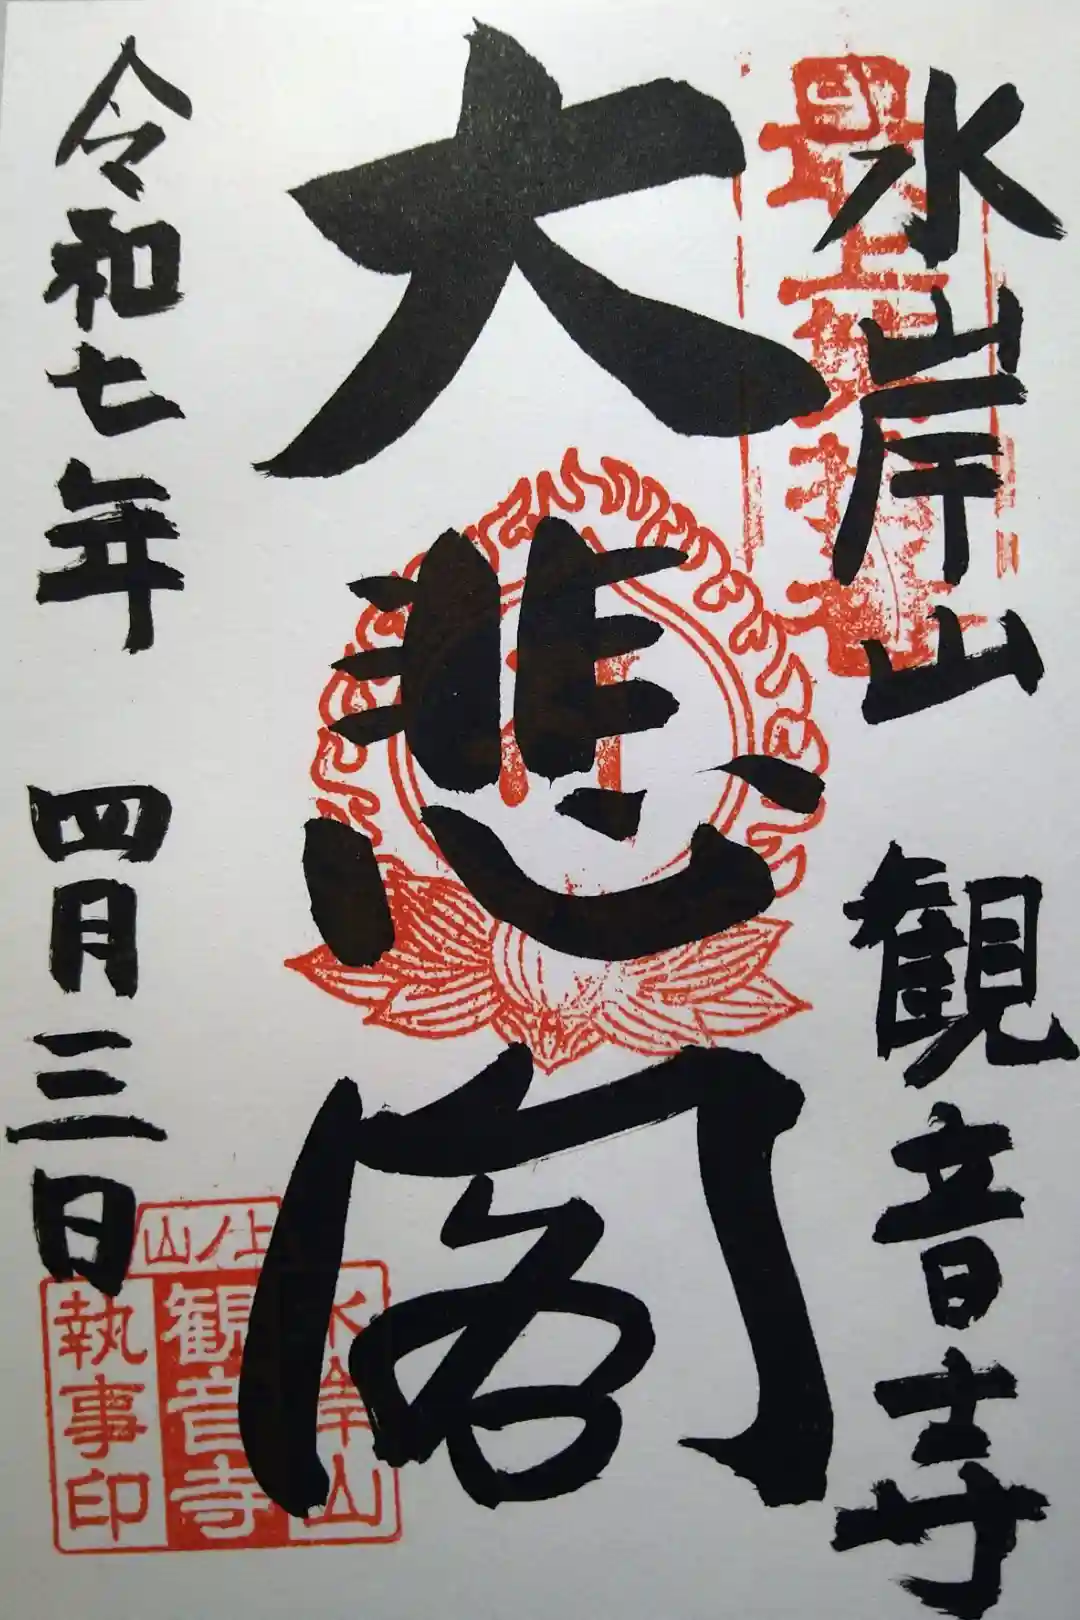 水岸山　観音寺
大悲閣
令和七年　四月三日
上ノ山
水岸山
観音寺
執事印